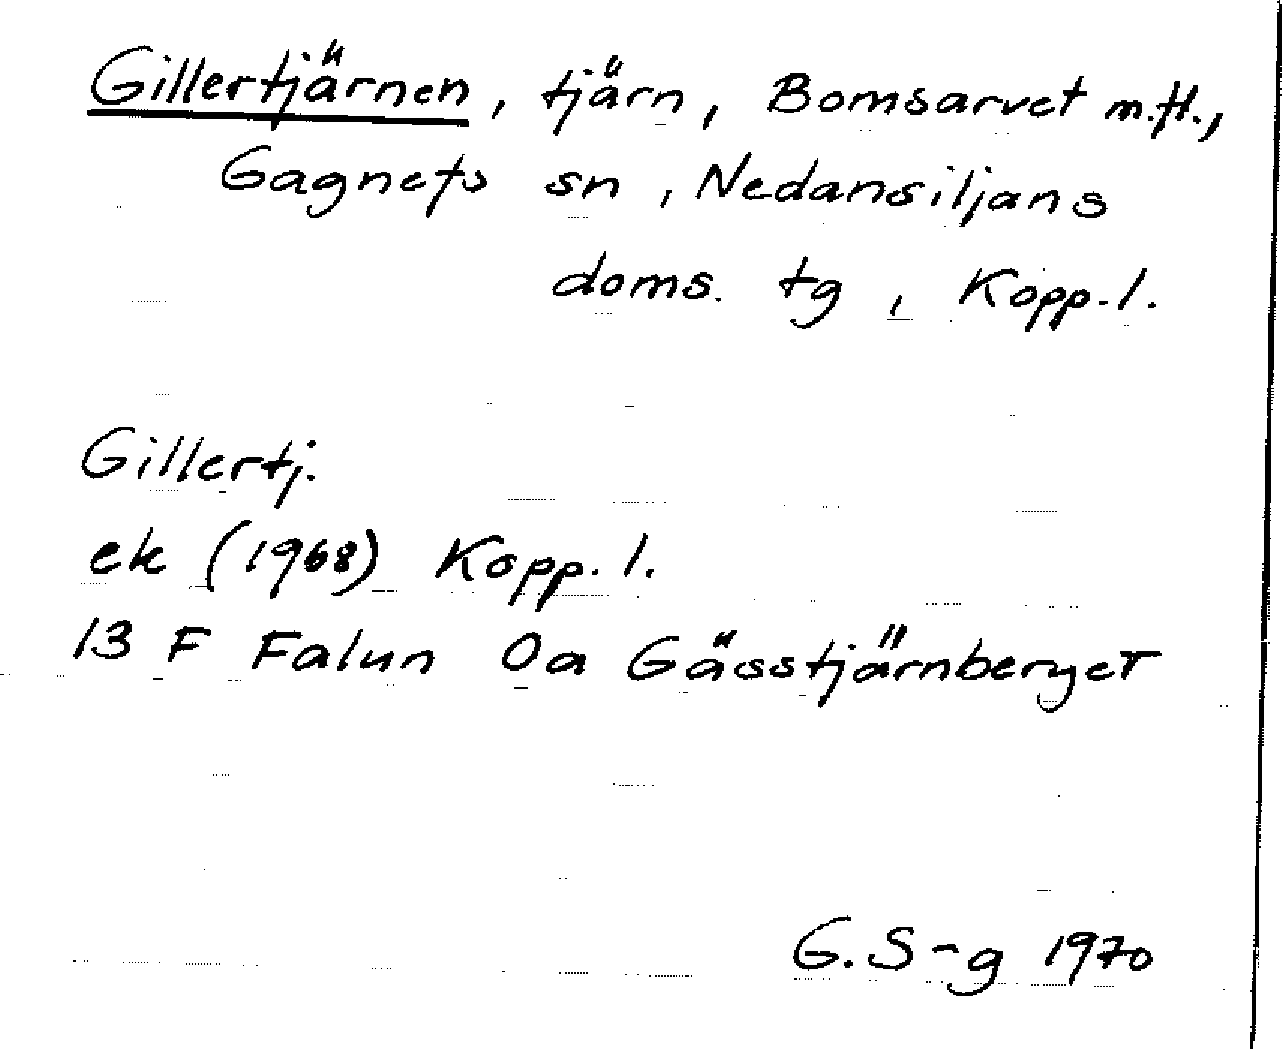 Gillertjärnen, tjärn, Bomsarvet m.fl.,
Gagnefs sn, Nedansiljans
doms. tg, Kopp.l.
Gillertj.
ek (1968) Kopp. l.
13 F Falun 0a Gässtjärnberget
G. S-g 1970